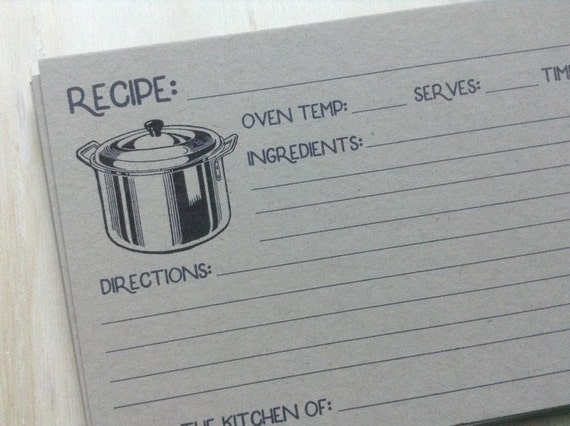 RECIPE:
OVEN TEMP: SERVES: TIM
INGREDIENTS:
DIRECTIONS:
THE KITCHEN OF: